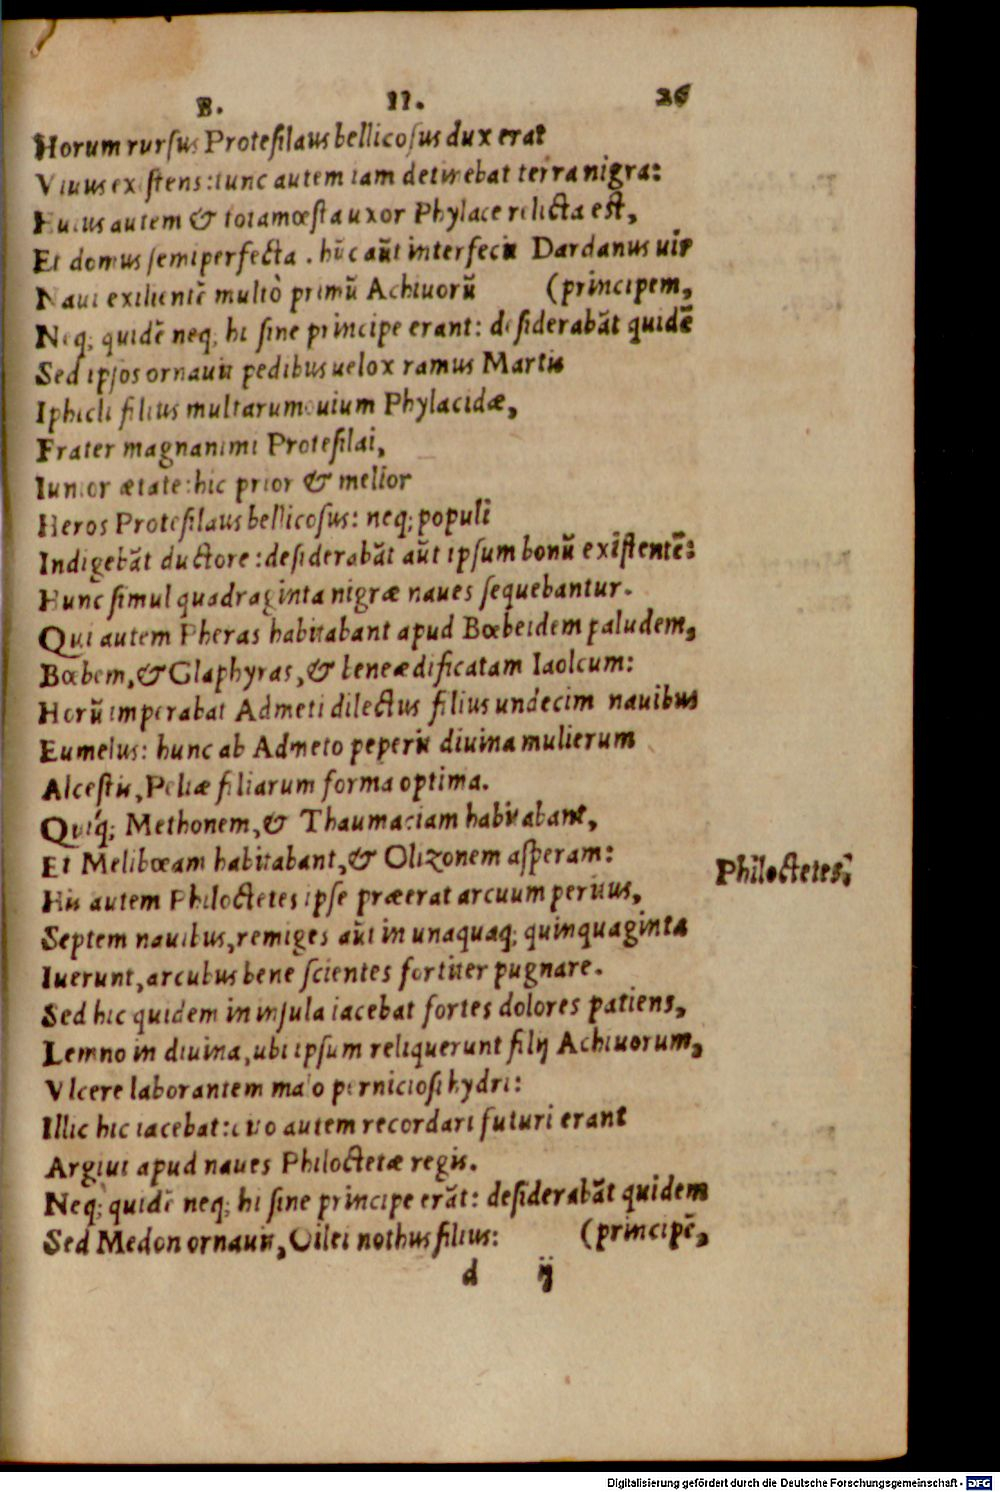 B. II. 26
Horum rursus Protesilaus bellicosus dux erat
Viuus existens: tunc autem iam detinebat terra nigra:
Huius autem & tota mœsta uxor Phylace relicta est,
Et domus semiperfecta. hūc aūt interfecit Dardanus uir
Naui exilientē multò primū Achiuorū (principem,
Neq; quidē neq; hi sine principe erant: desiderabāt quidē
Sed ipsos ornauit pedibus uelox ramus Martis
Iphicli filius multarum ouium Phylacidæ,
Frater magnanimi Protesilai,
Iunior ætate: hic prior & melior
Heros Protesilaus bellicosus: neq; populi
Indigebāt ductore: desiderabāt aūt ipsum bonū existentē:
Hunc simul quadraginta nigræ naues sequebantur.
Qui autem Pheras habitabant apud Bœbeidem paludem,
Bœbem, & Glaphyras, & bene ædificatam Iaolcum:
Horū imperabat Admeti dilectus filius undecim nauibus
Eumelus: hunc ab Admeto peperit diuina mulierum
Alcestis, Peliæ filiarum forma optima.
Quiq́; Methonem, & Thaumaciam habitabant,
Et Melibœam habitabant, & Olizonem asperam:
His autem Philoctetes ipse præerat arcuum peritus,
Philoctetes.
Septem nauibus, remiges aūt in unaquaq; quinquaginta
Iuerunt, arcubus bene scientes fortiter pugnare.
Sed hic quidem in insula iacebat fortes dolores patiens,
Lemno in diuina, ubi ipsum reliquerunt filij Achiuorum,
Vlcere laborantem malo perniciosi hydri:
Illic hic iacebat: cito autem recordari futuri erant
Argiui apud naues Philoctetæ regis.
Neq; quidē neq; hi sine principe erāt: desiderabāt quidem
Sed Medon ornauit, Oilei nothus filius: (principē,
d ij
Digitalisierung gefördert durch die Deutsche Forschungsgemeinschaft - DFG